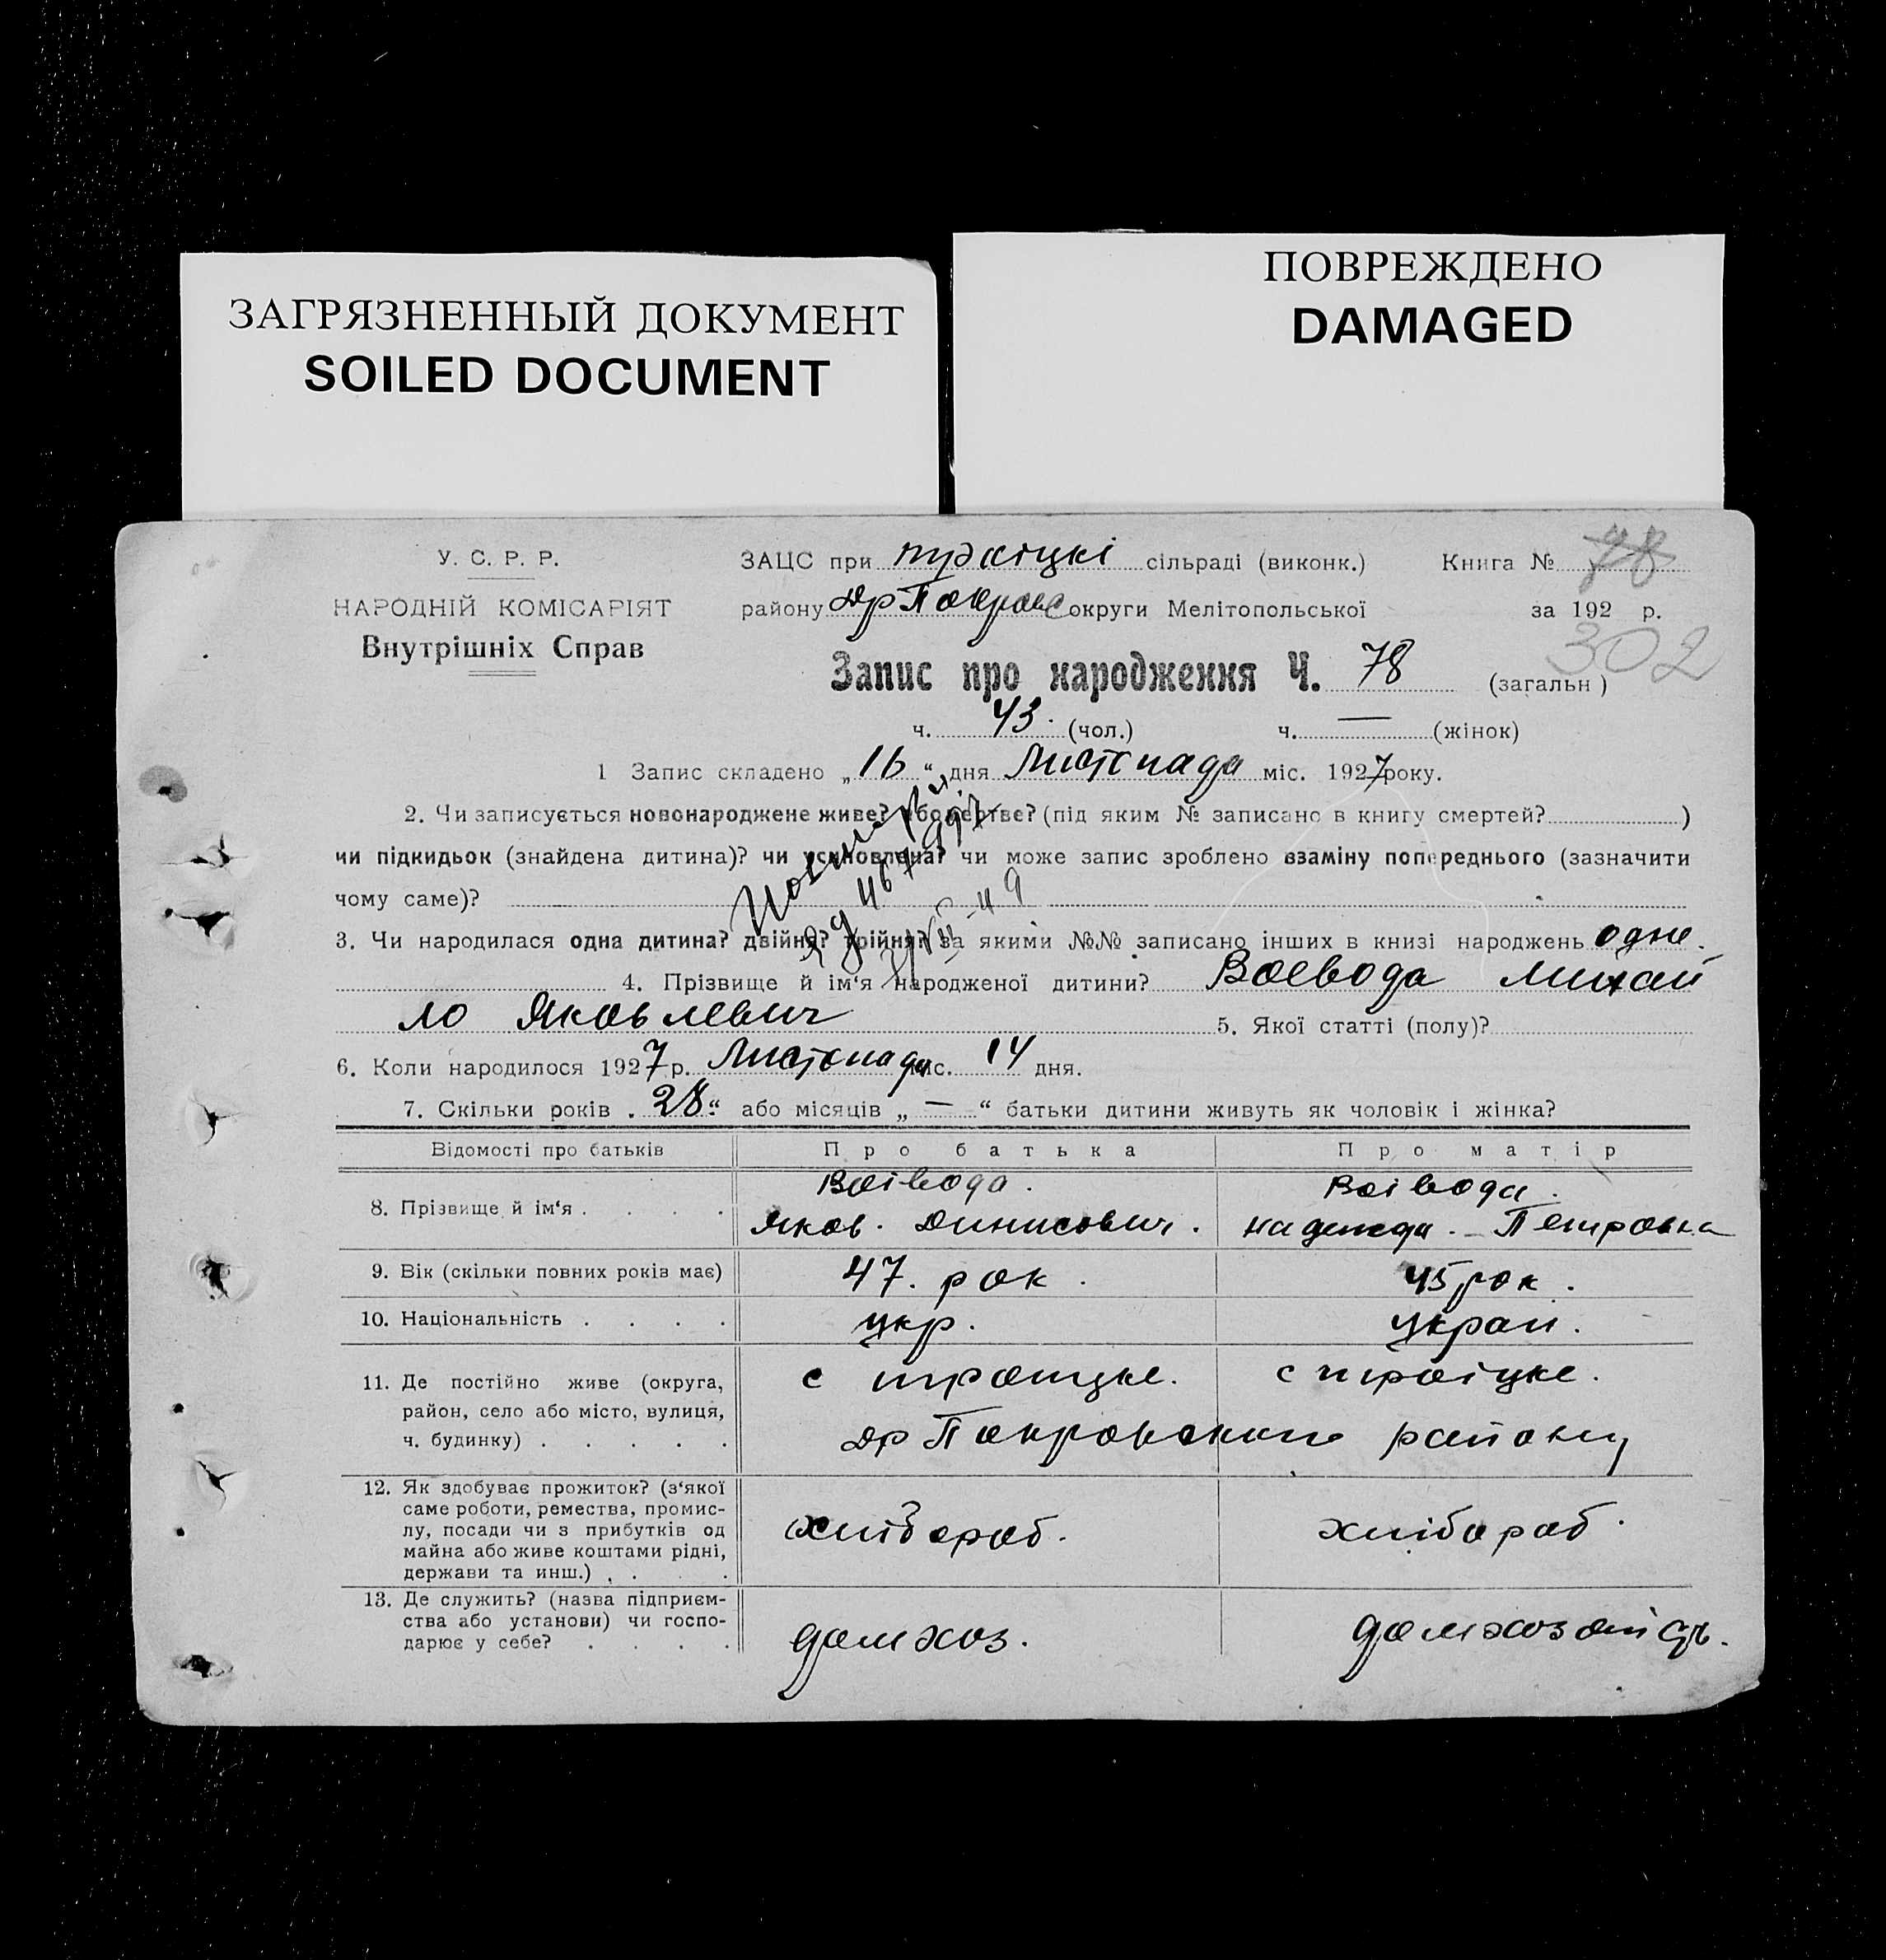 ЗАГРЯЗНЕННЫЙ ДОКУМЕНТ
SOILED DOCUMENT
ПОВРЕЖДЕНО
DAMAGED
У. С. Р. Р.
НАРОДНІЙ КОМІСАРІЯТ
Внутрішніх Справ
ЗАЦС при троіцкі сільраді (виконк.) Книга № 78
району др Покровс округи Мелітопольської за 192 р.
302
Запис про народження Ч. 78 (загальн )
ч. 43. (чол.) ч. — (жінок)
1 Запис складено „16“ дня Листопада міс. 1927 року.
2. Чи записується новонароджене живе? або мертве? (під яким № записано в книгу смертей? )
чи підкидьок (знайдена дитина)? чи усиновлена? чи може запис зроблено взаміну попереднього (зазначити
чому саме)?
3. Чи народилася одна дитина? двійня? трійня? за якими №№ записано інших в книзі народжень одне.
4. Прізвище й ім‘я народженої дитини? Воевода Михай
ло Яковлевич 5. Якої статті (полу)?
6. Коли народилося 1927 р. Листопада міс. 14 дня.
7. Скільки років „28“ або місяців „ — “ батьки дитини живуть як чоловік і жінка?
Відомості про батьків Про батька Про матір
8. Прізвище й ім‘я . . . .
Воівода.
Яков. Динисович.
Воівода.
Надежда. Петровна
9. Вік (скільки повних років має) 47. рок. 45 рок.
10. Національність . . . . укр. украи.
11. Де постійно живе (округа,
район, село або місто, вулиця,
ч. будинку) . . . . .
с троицке. с троіцке.
др Покровского району
12. Як здобуває прожиток? (з‘якої
саме роботи, ремества, промис-
лу, посади чи з прибутків од
майна або живе коштами рідні,
держави та инш.) . . .
хлібороб. хлібороб.
13. Де служить? (назва підприєм-
ства або установи) чи госпо-
дарює у себе? . . . .
домхоз. домхозяйісць.